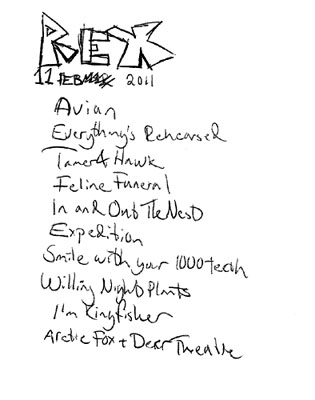 REX
11 FEB 2011
Avian
Everything's Rehearsed
Tamer & Hawk
Feline Funeral
In and Out The Nest
Expedition
Smile with your 1000 teeth
Willing Night Plants
I'm Kingfisher
Arctic Fox + Dear Theatre